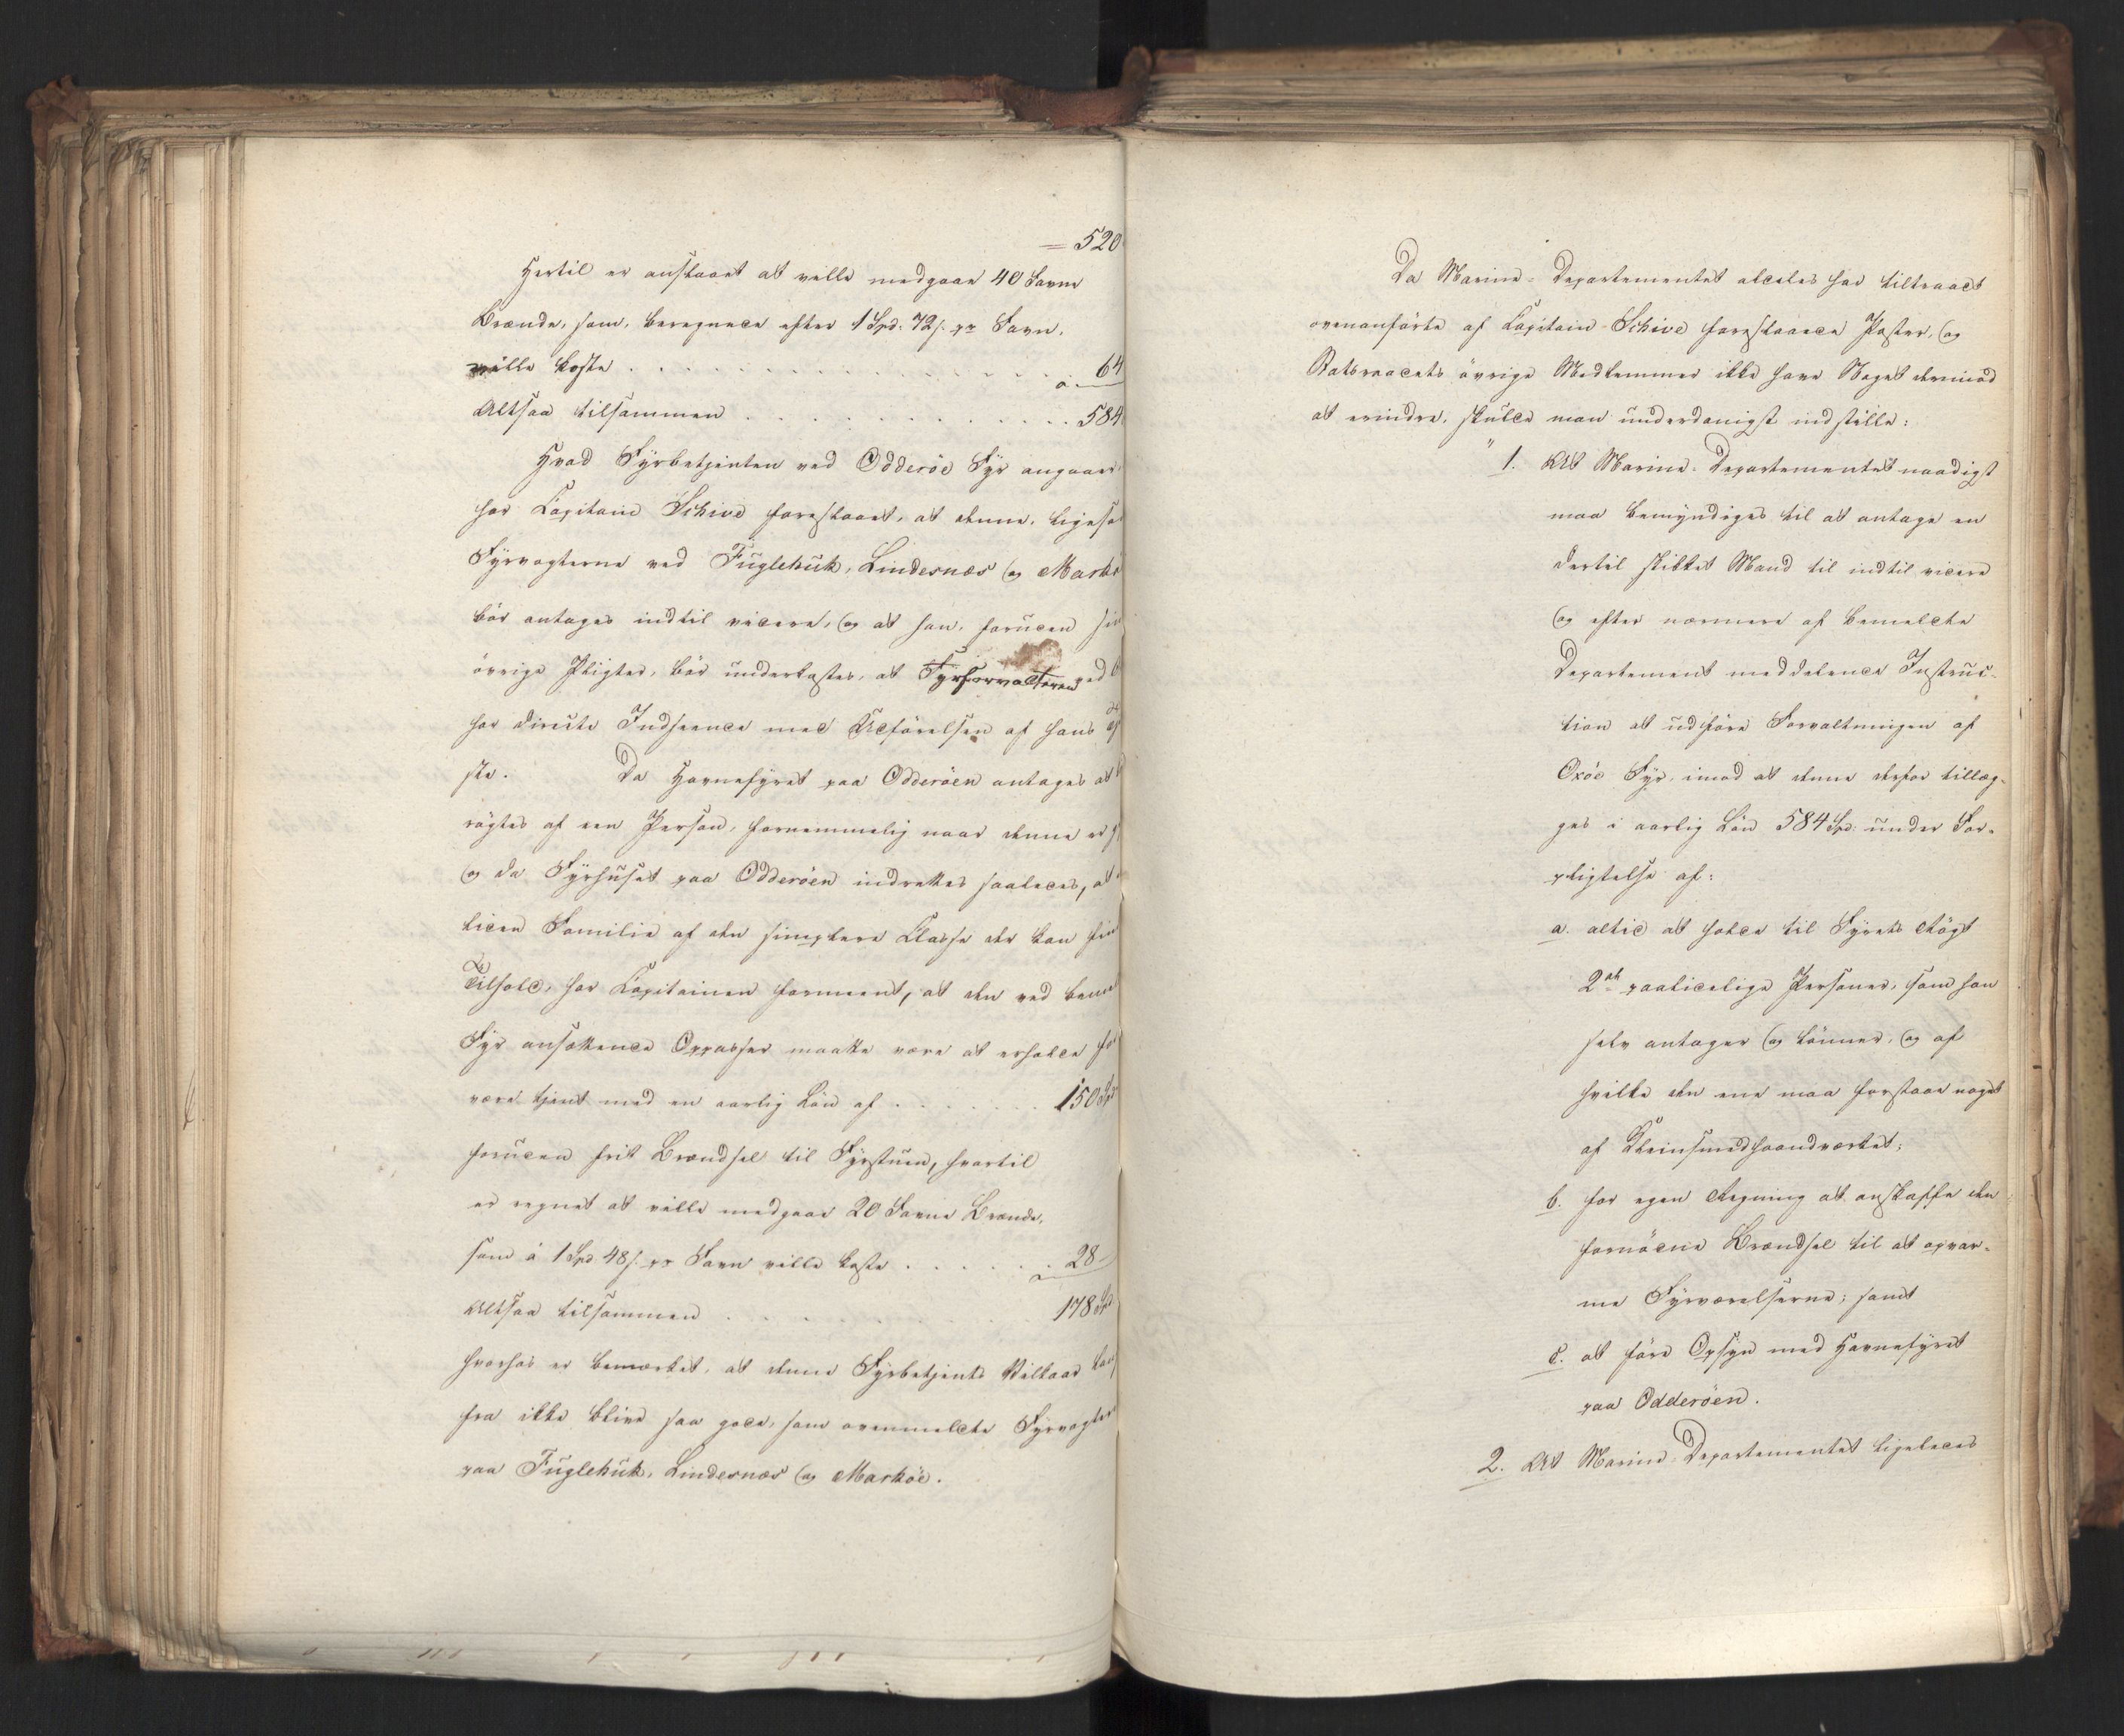 = 520
Hertil er anslaaet at ville medgaae 40 Favne
Brænde, som, beregnede efter 1 Spd: 72 s. pr Favn,
ville koste . . . . . . . . . . 64
Altsaa tilsammen . . . . . . . . . . 584
Hvad Fyrbetjenten ved Odderöe Fyr angaaer,
har Capitain Schive foreslaaet, at denne, ligesom
Fyrvogterne ved Fuglehuk, Lindesnæs og Markö
bör antages indtil videre, og at han, foruden sin
övrige Pligter, bör underkastes, at Fyrforvalteren ved
har directe Indseende med Udförelsen af hans
ste. Da Havnefyret paa Odderöen antages at
rögtes af een Person, fornemmelig naar denne er
og da Fyrhuset paa Odderöen indrettes saaledes, at
liden Familie af den simplere Classe der kan fin
Tilhold, har Capitainen formeent, at den ved bemel
Fyr ansættende Oppasser maatte være at erholde for
være tjent med en aarlig Lön af . . . . . . 150 Spd
foruden frit Brændsel til Fyrstuen, hvortil
er regnet at ville medgaae 20 Favne Brænde,
som à 1 Spd 48 s. pr Favn ville koste . . . . . . 28 –
Altsaa tilsammen . . . . . . . . . . 178 Spd
hvorhos er bemærket, at denne Fyrbetjents Vilkaar
fra ikke blive saa gode, som ovenmeldte Fyrvogter
paa Fuglehuk, Lindesnæs og Marköe.
Da Marine-Departementet aldeles har tiltraadt
ovenanförte af Capitain Schive foreslaaede Poster, og
Statsraadets övrige Medlemmer ikke have Noget derimod
at erindre, skulde man underdanigst indstille:
1. At Marine-Departementet naadigst
maa bemyndiges til at antage en
dertil skikket Mand til indtil videre
og efter nærmere af bemeldte
Departement meddelende Instruc-
tion at udföre Forvaltningen af
Oxöe Fyr, imod at denne derfor tillæg-
ges i aarlig Lön 584 Spd: under For-
pligtelse af:
a. altid at holde til Fyrets Rögt
2de paalidelige Personer, som han
selv antager og lönner, og af
hvilke den ene maa forstaae noget
af Kleinsmedhaandværket;
b. for egen Regning at anskaffe den
fornödne Brændsel til at opvar-
me Fyrværelserne; samt
c. at före Opsyn med Havnefyret
paa Odderöen.
2. At Marine-Departementet ligeledes